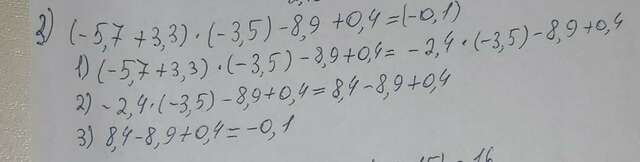 3) (-5,7+3,3)·(-3,5)-8,9+0,4=(-0,1)
1) (-5,7+3,3)·(-3,5)-8,9+0,4=-2,4·(-3,5)-8,9+0,4
2) -2,4·(-3,5)-8,9+0,4=8,4-8,9+0,4
3) 8,4-8,9+0,4=-0,1